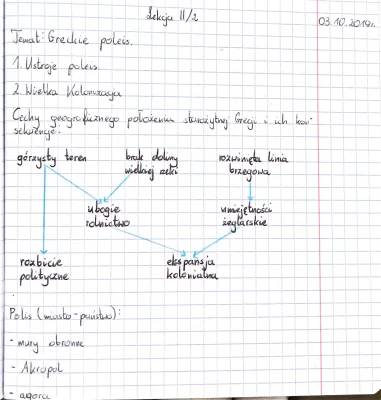 Lekcja 11/2
03.10.2019r.
Temat: Greckie poleis.
1. Ustroje poleis.
2. Wielka Kolonizacja
Cechy geograficznego położenia starożytnej Grecji i ich kon-
sekwencje.
górzysty teren
brak doliny
wielkiej rzeki
rozwinięta linia
brzegowa
ubogie
rolnictwo
umiejętności
żeglarskie
rozbicie
polityczne
ekspansja
kolonialna
Polis (miasto-państwo):
- mury obronne
- Akropol
- agora